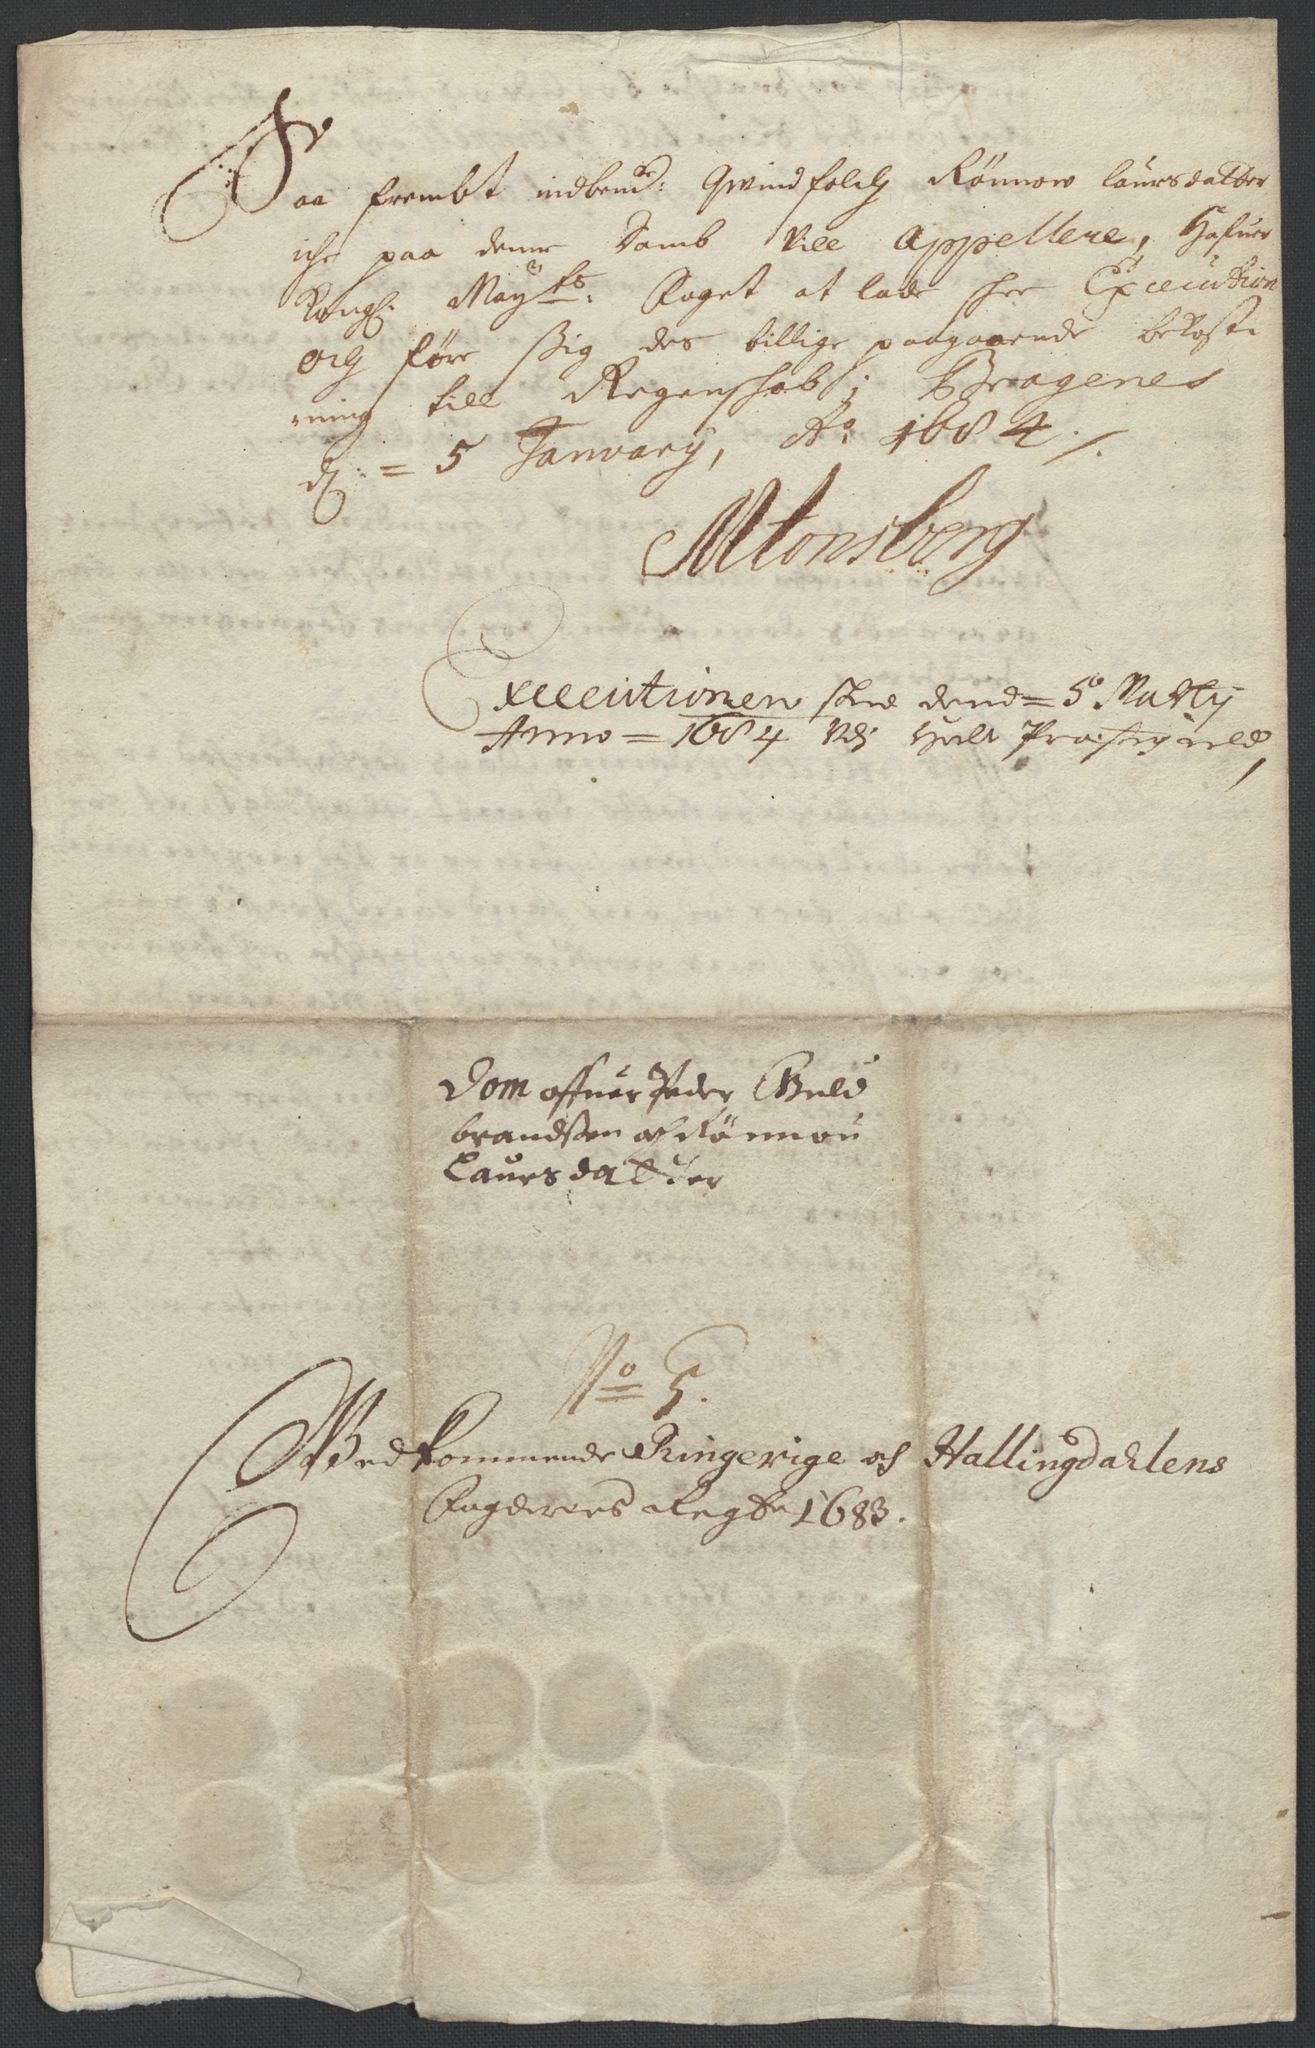 Saa frembt indbem:te Qvindfolch Rønnow Laursdatter
iche paa denne Domb vill Appellere, Hafuer
Kongl: May:ts: Foget at lade schee Execution
och føre sig des billige paagaaende bekost-
ning till Regenschab; Bragenes
d: = 5 January, Ao: 1684 ./.
MTonsberg
Excecutionen skede dend = 5 Marty
Anno = 1684 Vdj Hols Præstegield,
Dom offuer Peder Guld
brandsen och Rønnou
Laursdatter
No 5.
Vedkommende Ringerige och Hallingdahlens
Fogderies Regsk 1683.